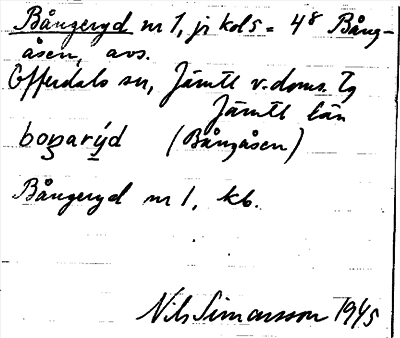 Bångeryd nr 1, jr kol 5 = 4⁸ Bång-
åsen, avs.
Offerdals sn, Jämtl v. doms. Tg
Jämtl län
boŋarýd (Bångåsen)
Bångeryd nr 1, kb.
Nils Simonsson 1945